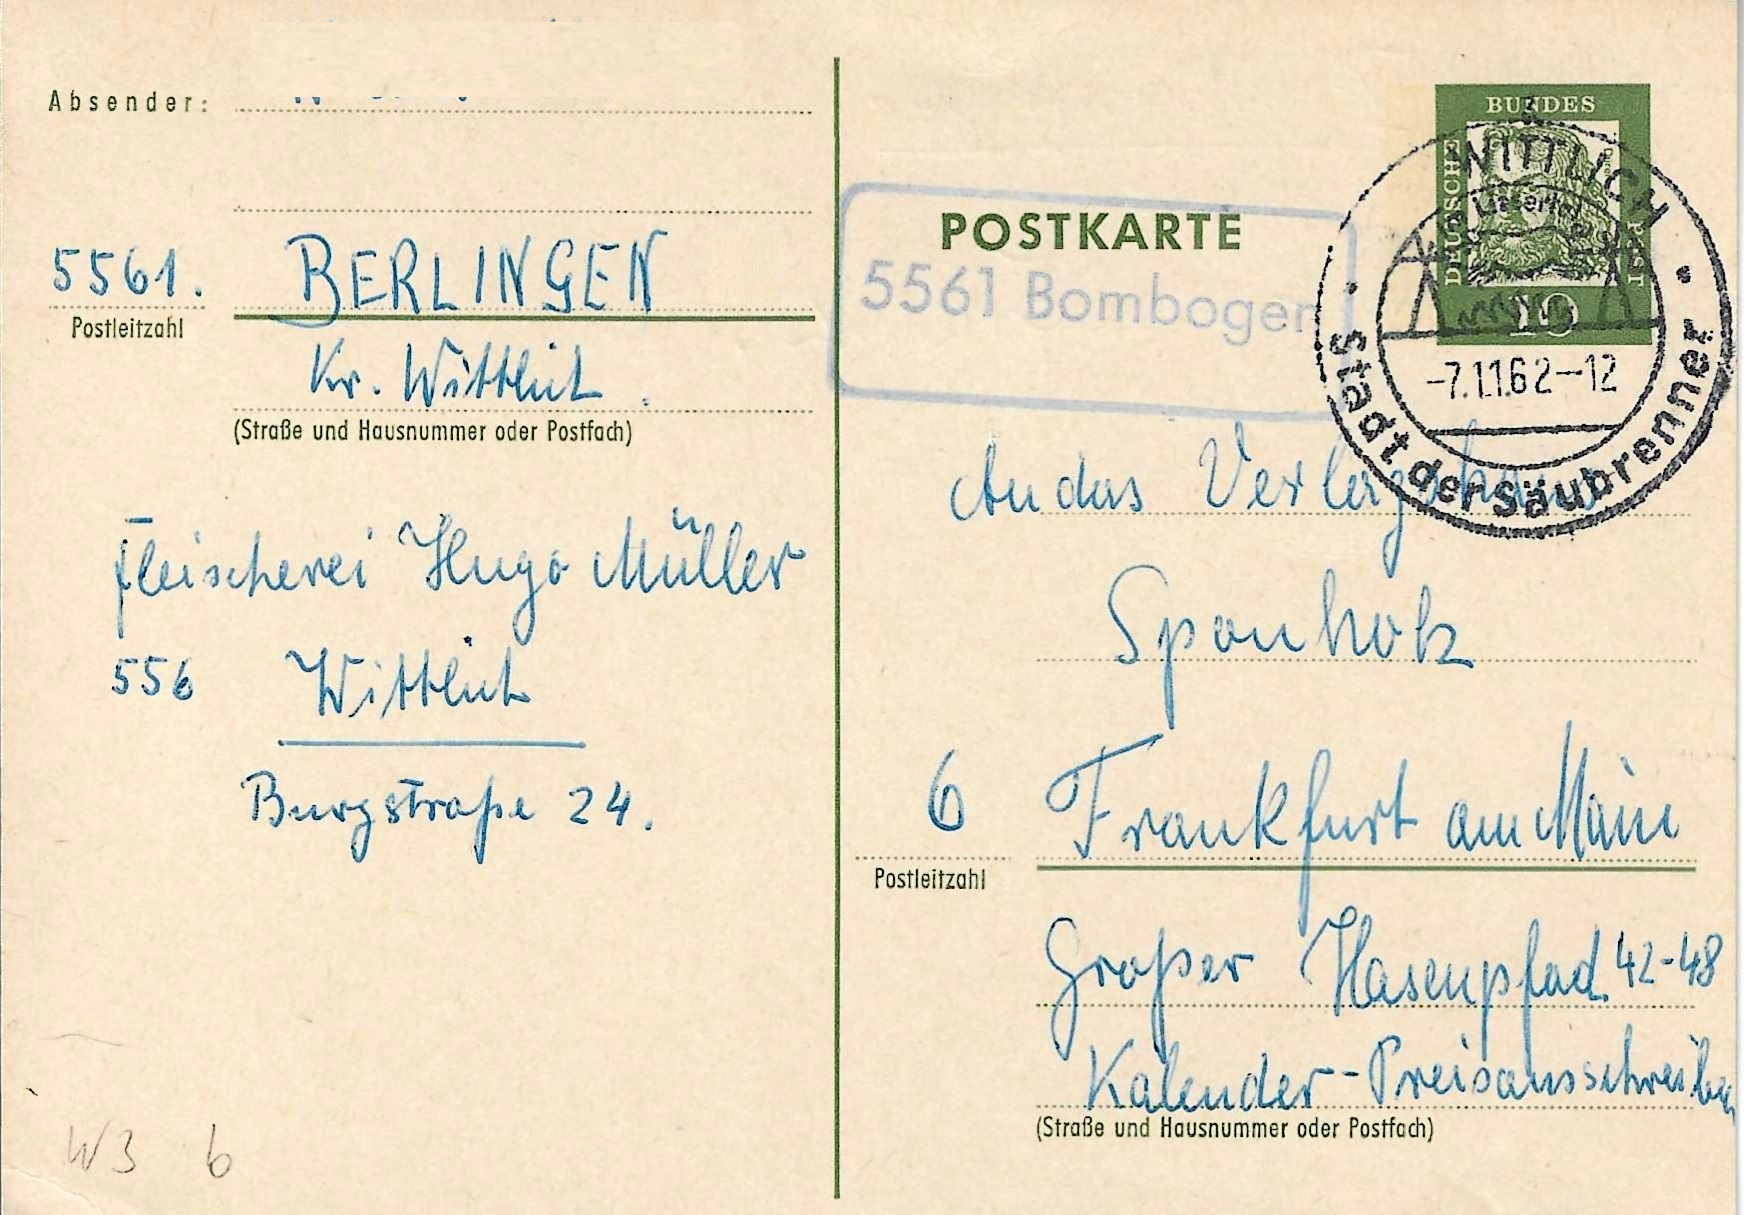 Absender:
5561. BERLINGEN
Postleitzahl
Kr. Wittlich.
(Straße und Hausnummer oder Postfach)
Fleischerei Hugo Müller
556 Wittlich
Burgstraße 24.
W3 b
POSTKARTE
5561 Bombogen
DEUTSCHE
BUNDES
POST
10
WITTLICH
-7.11.62-12
Stadt der Säubrenner
An das Verlagshaus
Sponholz
6 Frankfurt am Main
Postleitzahl
Großer Hasenpfad 42-48
Kalender-Preisausschreiben
(Straße und Hausnummer oder Postfach)